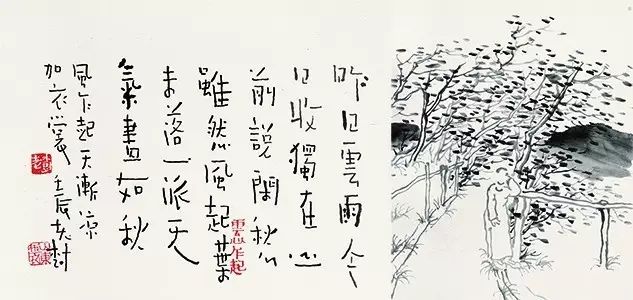 昨日雲雨今
日收獨在
前説閑秋
雖然風起葉
未落一派天
氣畫如秋
乍起
風乍起天漸涼
加衣裳 壬辰老樹